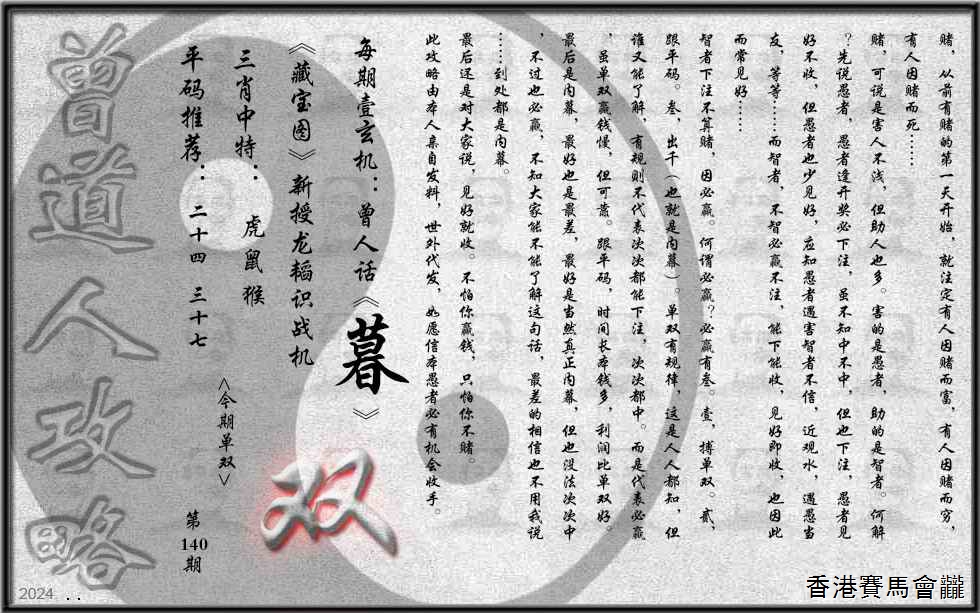 赌，从前有赌的第一天开始，就注定有人因赌而富，有人因赌而穷，
有人因赌而死……
赌，可说是害人不浅，但助人也多。害的是愚者，助的是智者。何解
？先说愚者，愚者逢开奖必下注，虽不知中不中，但也下注，愚者见
好不收，但愚者也少见好，应知愚者遇害智者不信，近观水，遇愚当
友，等等……而智者，不智必赢不注，能下能收，见好即收，也因此
而常见好……
智者下注不算赌，因必赢。何谓必赢？必赢有叁。壹，搏单双。贰，
跟平码。叁，出千（也就是内幕）。单双有规律，这是人人都知，但
谁又能了解，有规则不代表次次都能下注，次次都中。而是代表必赢
，虽单双赢钱慢，但可靠。跟平码，时间长本钱多，利润比单双好。
最后是内幕，最好也是最差，最好是当然真正内幕，但也没法次次中
，不过也必赢，不知大家能不能了解这句话，最差的相信也不用我说
……到处都是内幕。
最后还是对大家说，见好就收。不怕你赢钱，只怕你不赌。
此攻略由本人亲自发料，世外代发，如愿信本愚者必有机会收手。
每期壹玄机：曾人话《暮》
《藏宝图》新授龙韬识战机
三肖中特：虎鼠猴
平码推荐：二十四 三十七
<今期单双>
双
第140期
曾道人攻略
2024 ..
香港賽馬會